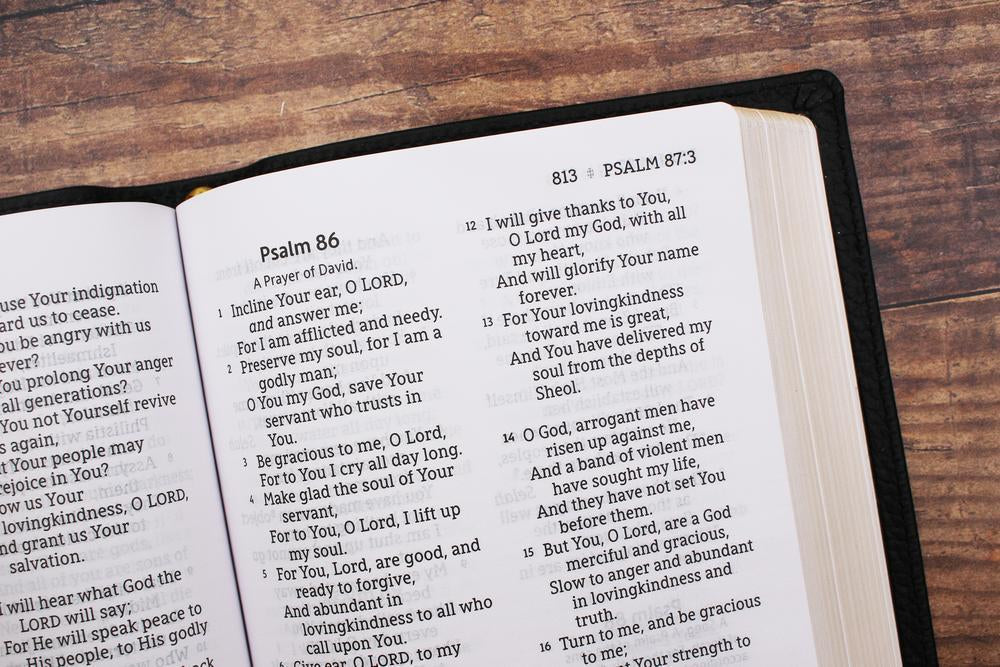 use Your indignation
us to cease.
be angry with us
prolong Your anger
all generations?
You not Yourself revive
again,
Your people may
rejoice in You?
us Your
lovingkindness, O LORD,
grant us Your
salvation.
will hear what God the
LORD will say;
For He will speak peace to
His people, to His godly
813 PSALM 87:3
Psalm 86
A Prayer of David.
1 Incline Your ear, O LORD,
and answer me;
For I am afflicted and needy.
2 Preserve my soul, for I am a
godly man;
O You my God, save Your
servant who trusts in
You.
3 Be gracious to me, O Lord,
For to You I cry all day long.
4 Make glad the soul of Your
servant,
For to You, O Lord, I lift up
my soul.
5 For You, Lord, are good, and
ready to forgive,
And abundant in
lovingkindness to all who
call upon You.
Give ear, O LORD, to my
12 I will give thanks to You,
O Lord my God, with all
my heart,
And will glorify Your name
forever.
13 For Your lovingkindness
toward me is great,
And You have delivered my
soul from the depths of
Sheol.
14 O God, arrogant men have
risen up against me,
And a band of violent men
have sought my life,
And they have not set You
before them.
15 But You, O Lord, are a God
merciful and gracious,
Slow to anger and abundant
in lovingkindness and
truth.
16 Turn to me, and be gracious
to me;
Your strength to